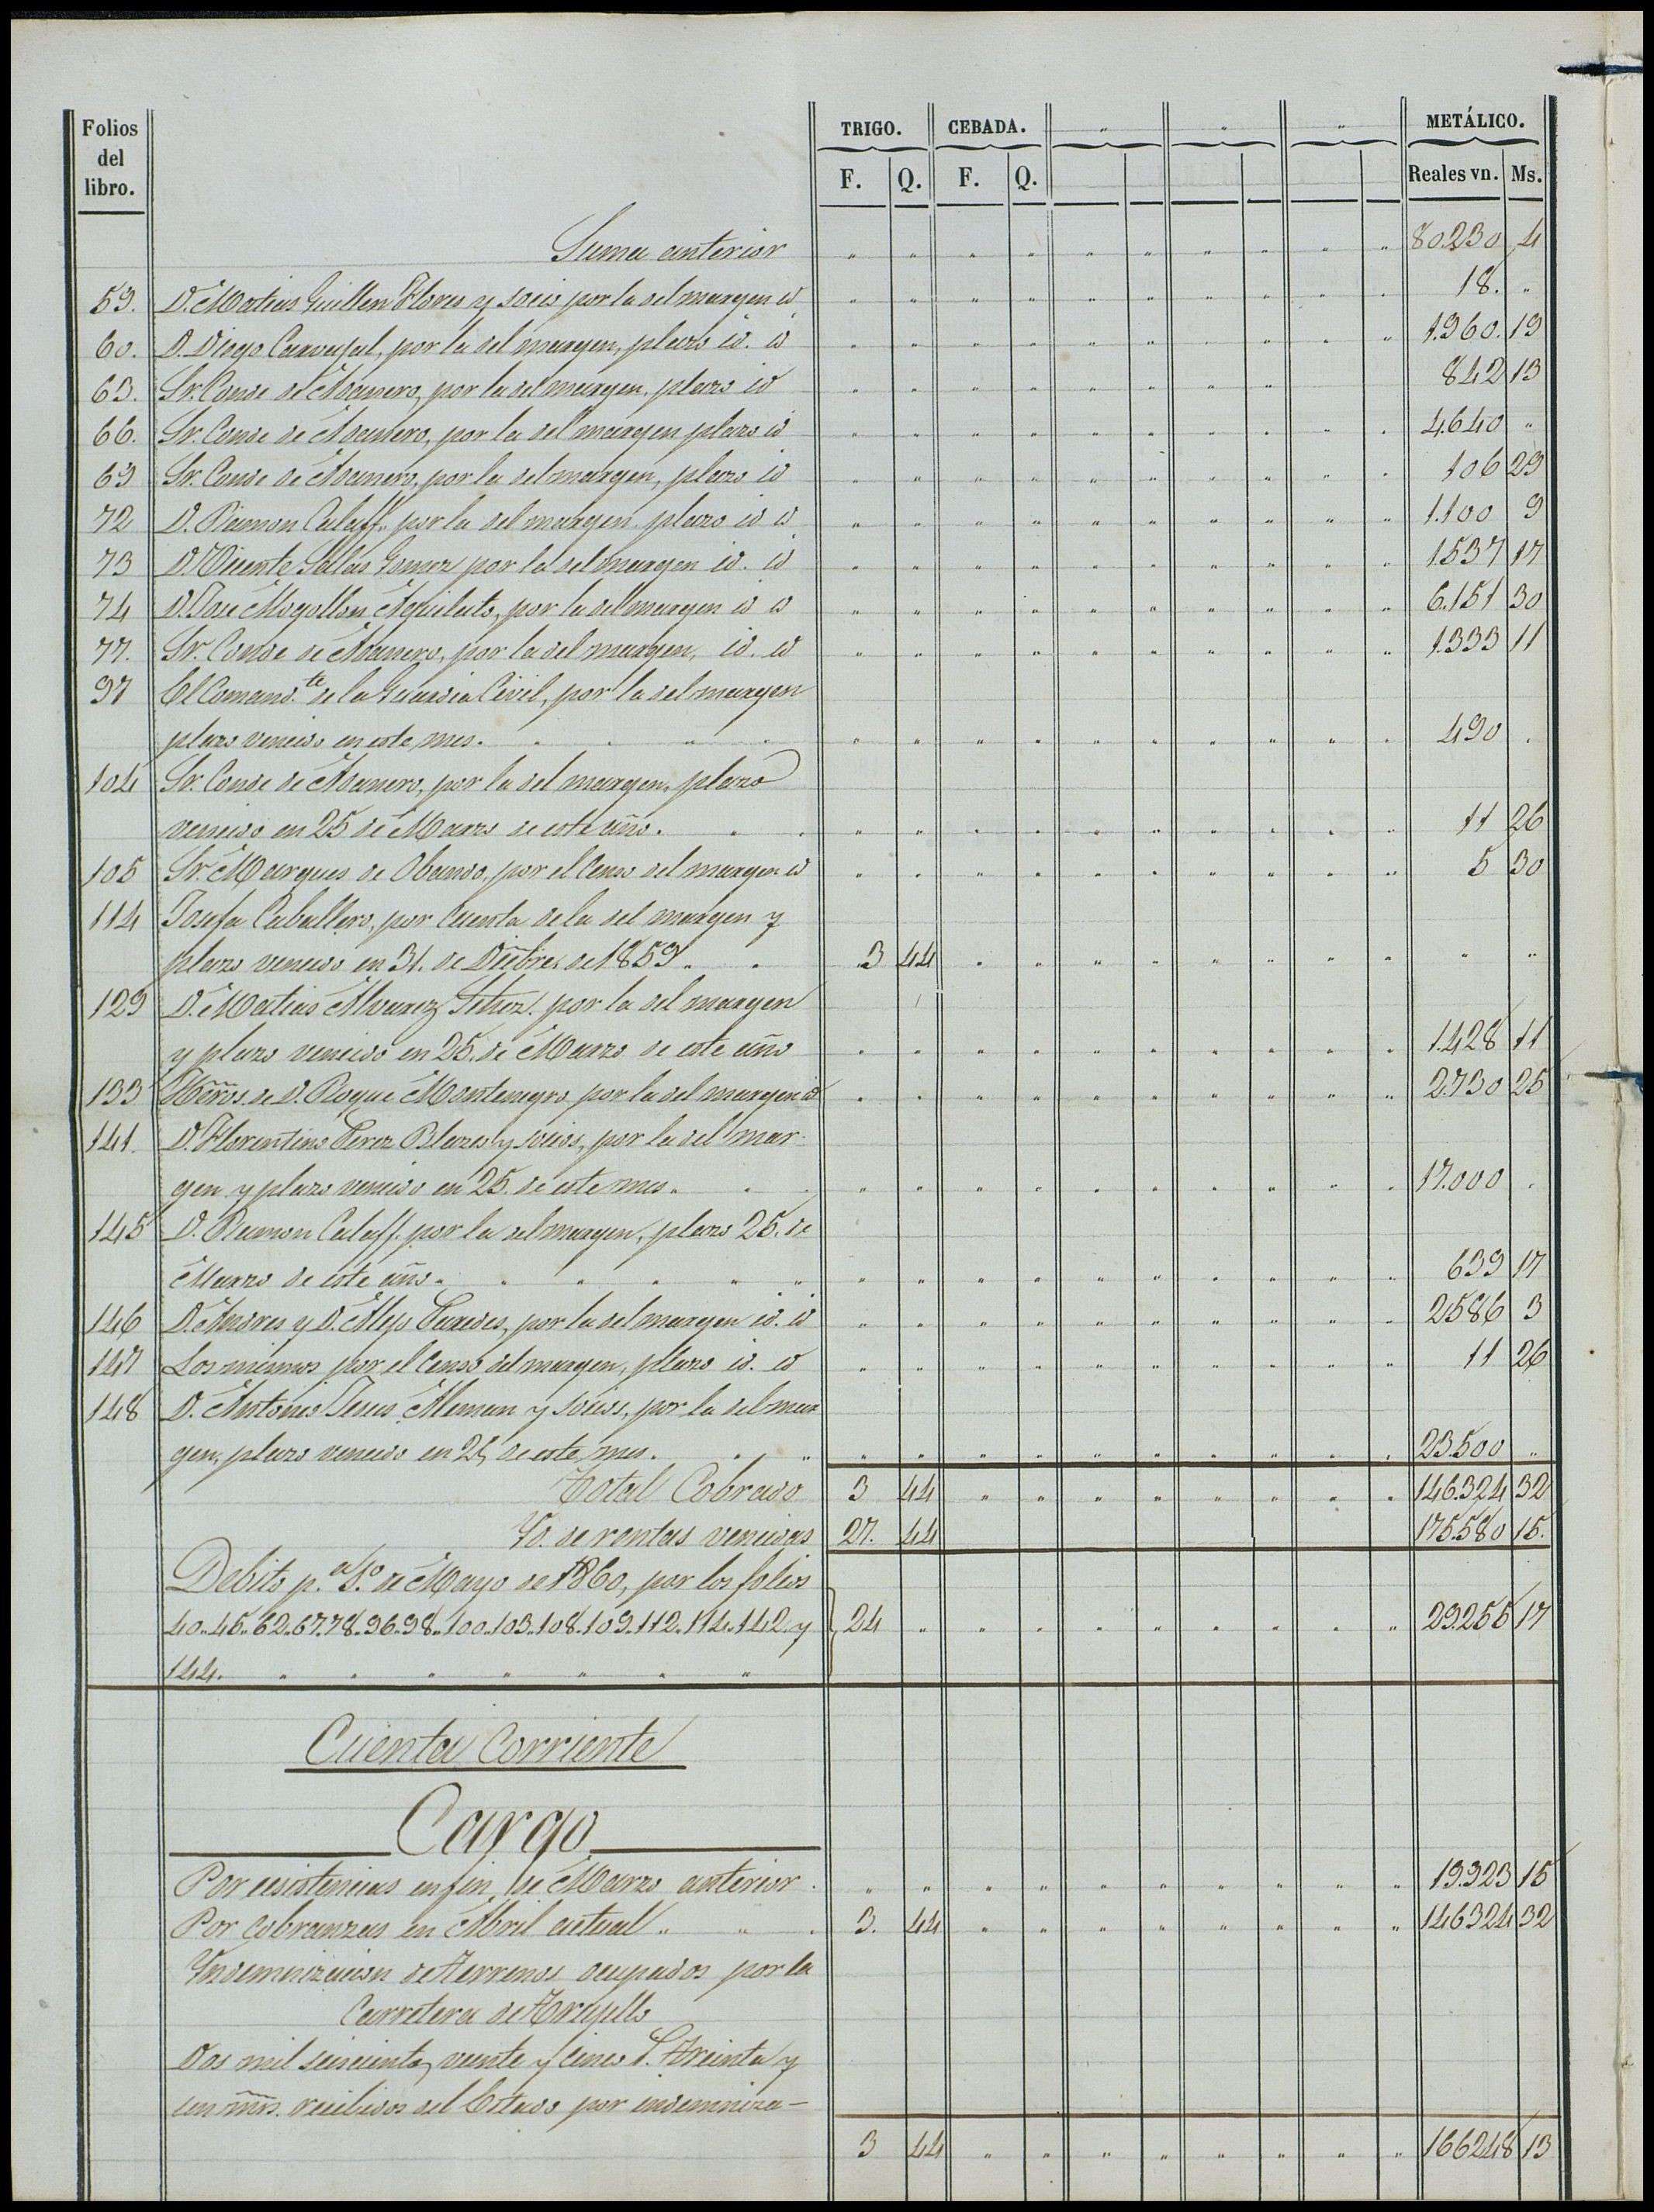 Folios del libro. TRIGO. CEBADA. " " " METÁLICO.
F. Q. F. Q. Reales vn. Ms.
Suma anterior 80.230 4
59. D. Matias Guillen Flores y socio por la del margen id 18. "
60. D. Diego Carvajal, por la del margen, plazo id. id 1.960. 19
63. Sr. Conde de Adanero, por la del margen, plazo id 842 13
66. Sr. Conde de Adanero, por la del margen plazo id 4.640 "
69 Sr. Conde de Adanero, por la del margen, plazo id 106 29
72 D. Ramon Calaff. por la del margen plazo id id 1.100 9
73 D. Vicente Salas Gomez por la del margen id. id 1.537 17
74 D. Jose Mogollon por la del margen id id 6.151 30
77. Sr. Conde de Adanero, por la del margen, id. id 1.333 11
97 El Comand.te de la Guardia Civil, por la del margen
plazo vencido en este mes. 490 .
104 Sr. Conde de Adanero, por la del margen, plazo
vencido en 25 de Marzo de este año. 11 26
105 Sr. Marques de Obando, por el Censo del margen id 5 30
114 Josefa Caballero, por cuenta de la del margen y
plazo vencido en 31. de Dibre. de 1859. 3 44 " "
129 D. Matias Alvarez por la del margen
y plazo vencido en 25. de Marzo de este año 1.428 11
133 Heros. de D. Roque Montenegro por la del margen id 2.730 25
141. D. Florentino Perez Blazes y socios, por la del mar-
gen y plazo vencido en 25. de este mes. 17.000 .
145 D. Ramon Calaff. por la del margen, plazo 25. de
Marzo de este año. 639 17
146 D. Andres y D. Alejo Paredes, por la del margen id. id 2586 3
147 Los mismos por el Censo del margen, plazo id. id 11 26
148 D. Antonio Jesus Aleman y socios, por la del mar
gen, plazo vencido en 25 de este mes. 23.500 "
Total Cobrado 3 44 146.324 32
Yd. de rentas vencidas 27. 44 175.580 15.
Debito p.a 1.o de Mayo de 1860, por los folios
40..45..62..67.78..96..98..100..103..108.109.112.114.142. y 24 " 29.255 17
144.
Cuenta Corriente
Cargo
Por ecsistencias en fin de Marzo anterior. 19.923 15
Por Cobranzas en Abril actual 3. 44 146324 32
Yndemnizacion de terrenos ocupados por la
Carretera de Trujillo
Dos mil seiscientos veinte y cinco treinta y
un mrs. recibidos del Estado por indemniza-
3 44 166248 13